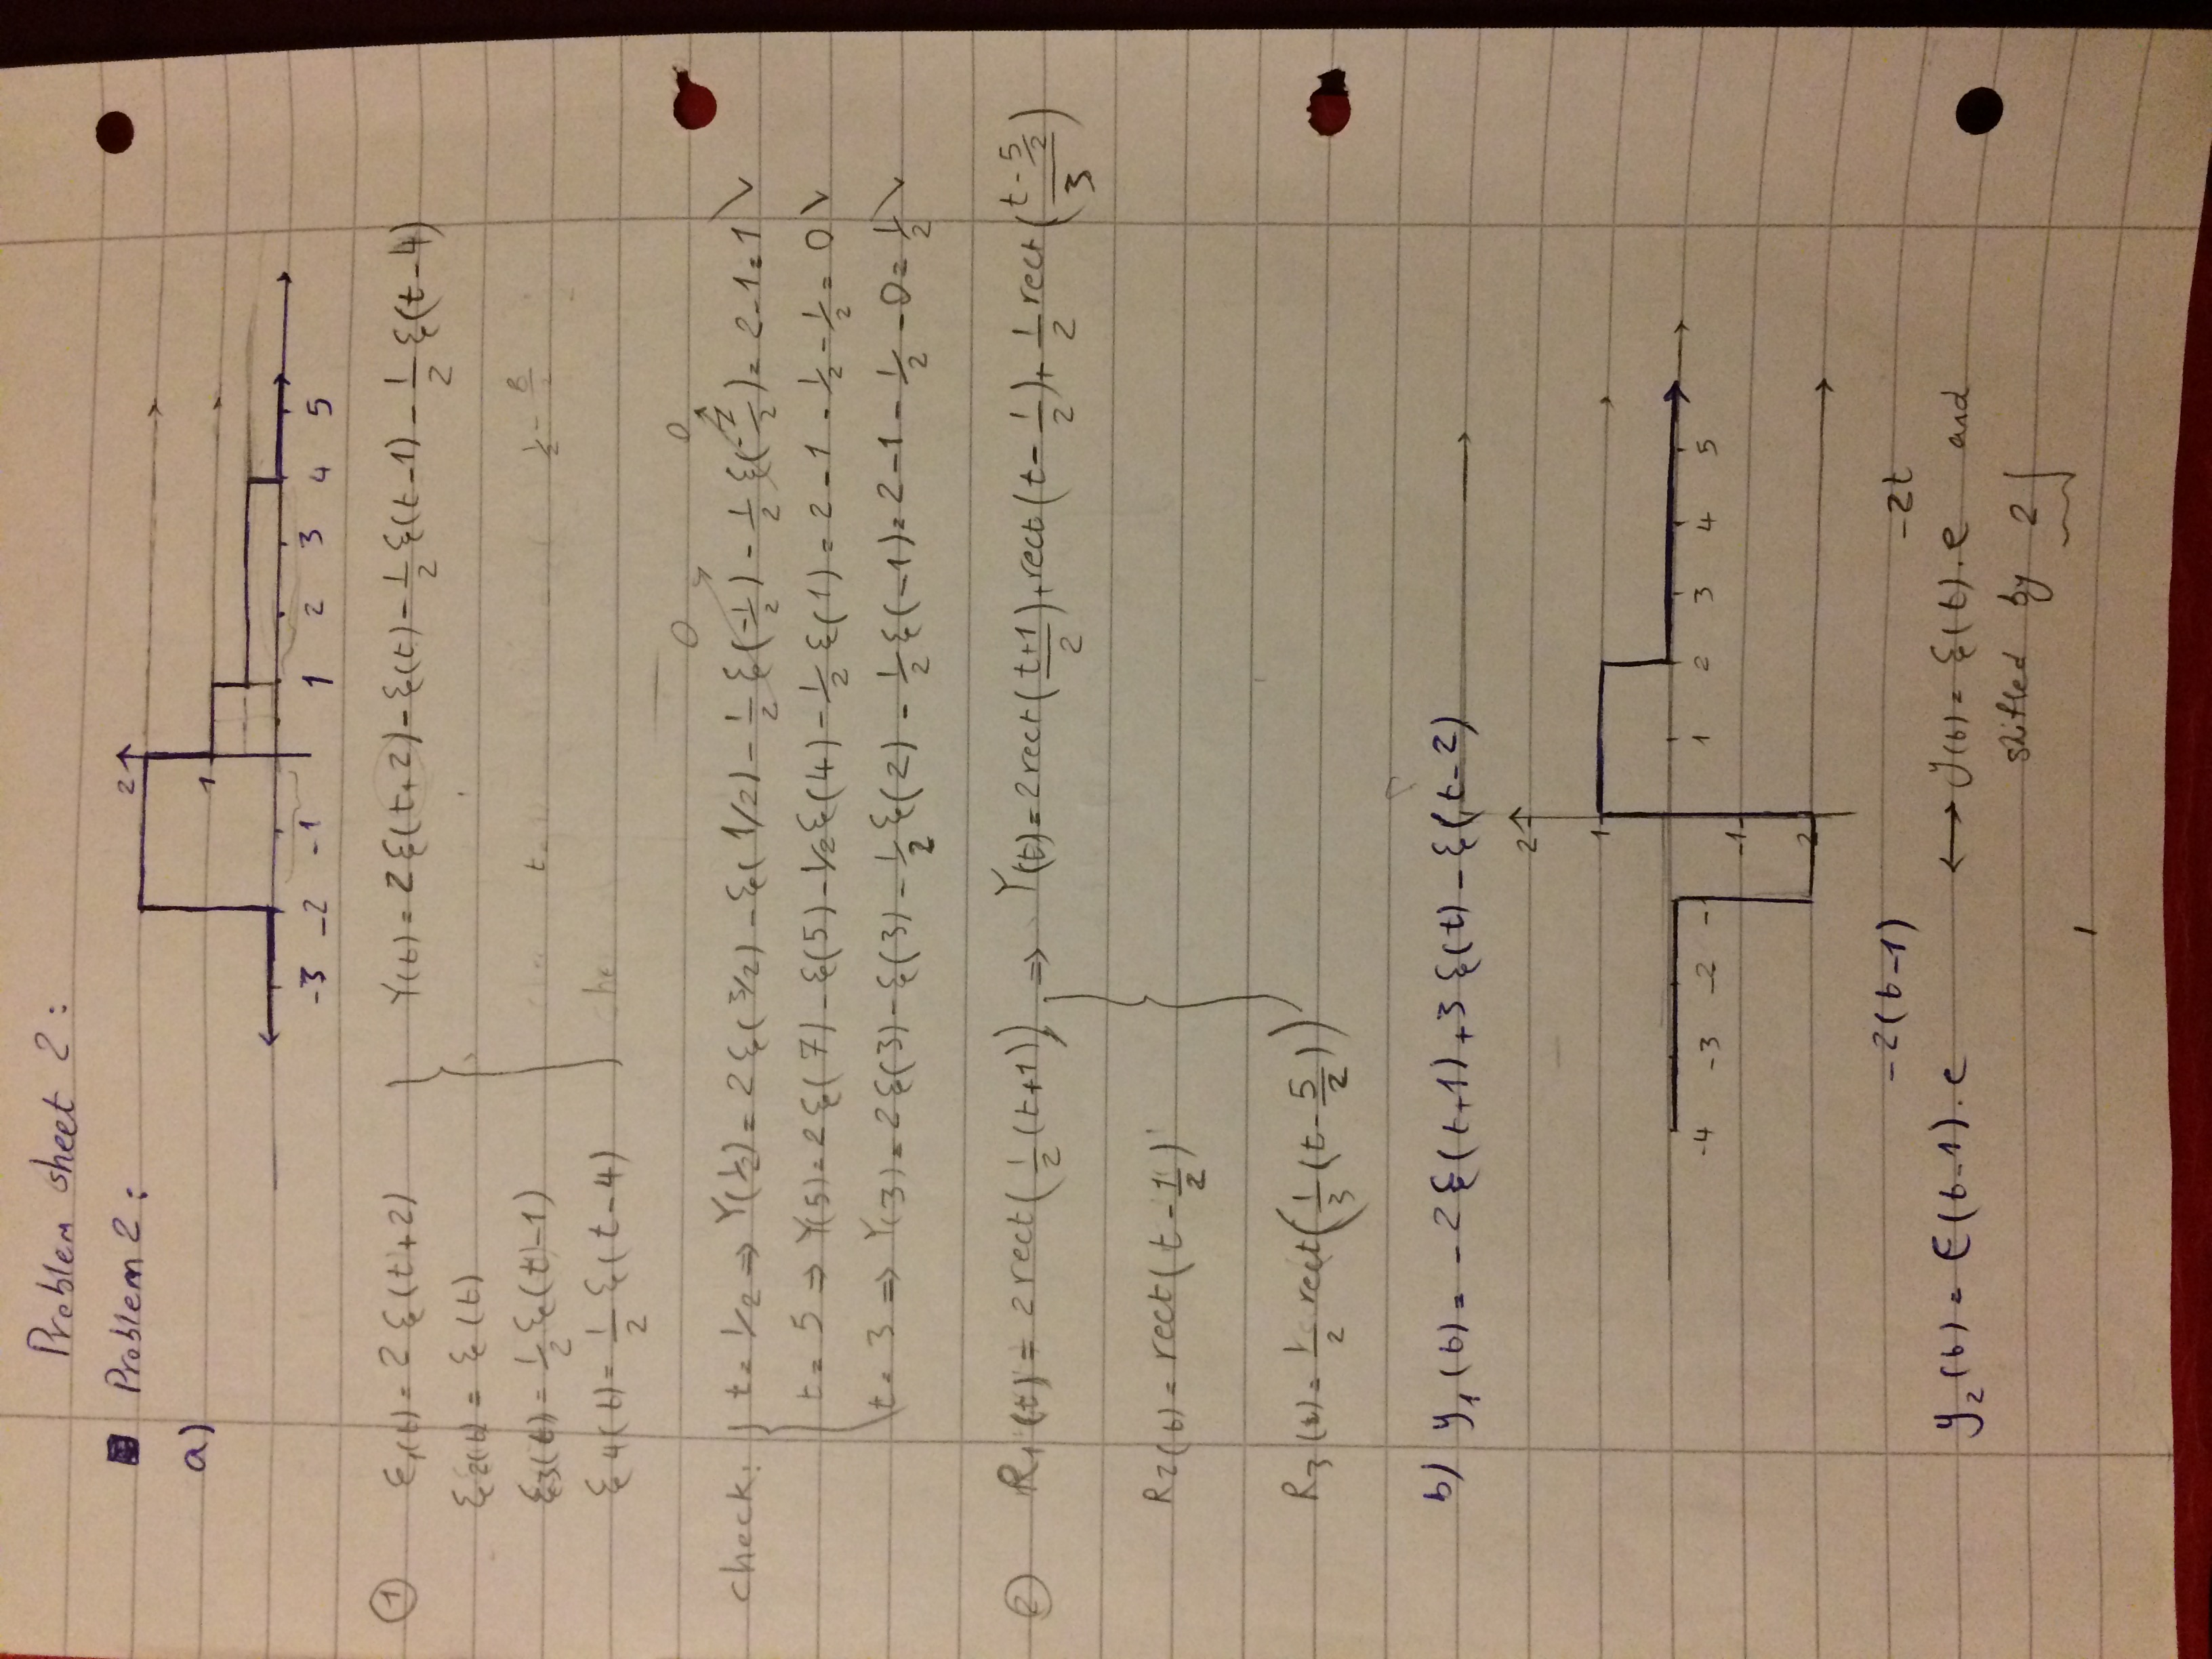 Problem sheet 2 :
Problem 2 :
a)
2
1
-3 -2 -1 1 2 3 4 5
① ξ1(t) = 2 ξ(t+2) Y(t) = 2 ξ(t+2) - ξ(t) - 1/2 ξ(t-1) - 1/2 ξ(t-4)
ξ2(t) = ξ(t)
ξ3(t) = 1/2 ξ(t-1)
ξ4(t) = 1/2 ξ(t-4)
0 0
check: t = 1/2 ⇒ Y(1/2) = 2 ξ(3/2) - ξ(1/2) - 1/2 ξ(-1/2) - 1/2 ξ(-7/2) = 2-1=1
t = 5 ⇒ Y(5) = 2 ξ(7) - ξ(5) - 1/2 ξ(4) - 1/2 ξ(1) = 2 - 1 - 1/2 - 1/2 = 0
t = 3 ⇒ Y(3) = 2 ξ(3) - ξ(3) - 1/2 ξ(2) - 1/2 ξ(-1) = 2 - 1 - 1/2 - 0 = 1/2
② R1(t) = 2 rect(1/2 (t+1)) ⇒ Y(t) = 2 rect((t+1)/2) + rect(t - 1/2) + 1/2 rect((t - 5/2)/3)
R2(t) = rect(t - 1/2)
R3(t) = 1/2 rect(1/3 (t - 5/2))
b) y1(t) = -2 ξ(t+1) + 3 ξ(t) - ξ(t-2)
2
1
-4 -3 -2 -1 1 2 3 4 5
-1
-2
y2(t) = ϵ(t-1) . e^-2(t-1) ↔ y(t) = ξ(t) . e^-2t and
shifted by 2